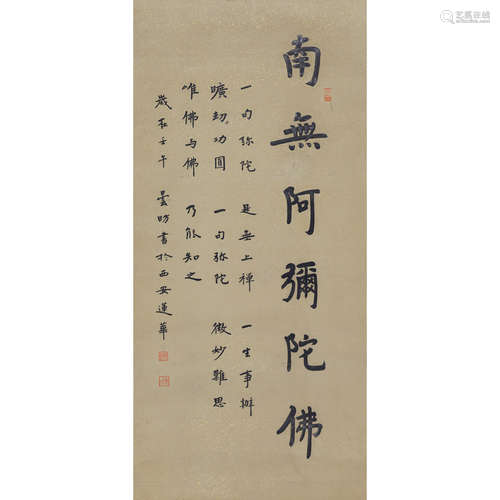 南無阿彌陀佛
一句弥陀 是無上禪 一生事辦
曠劫功圓 一句弥陀 微妙難思
唯佛与佛 乃能知之
歲在壬午 曇昉書於西安蓮華